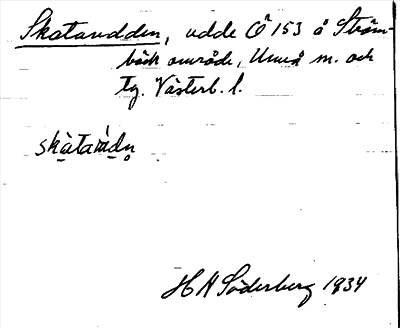 Skataudden, udde CÖ 153 å Ström-
bäck område, Umeå m. och
tg. Västerb. l.
skàtaùdn̥
H A Söderberg 1934